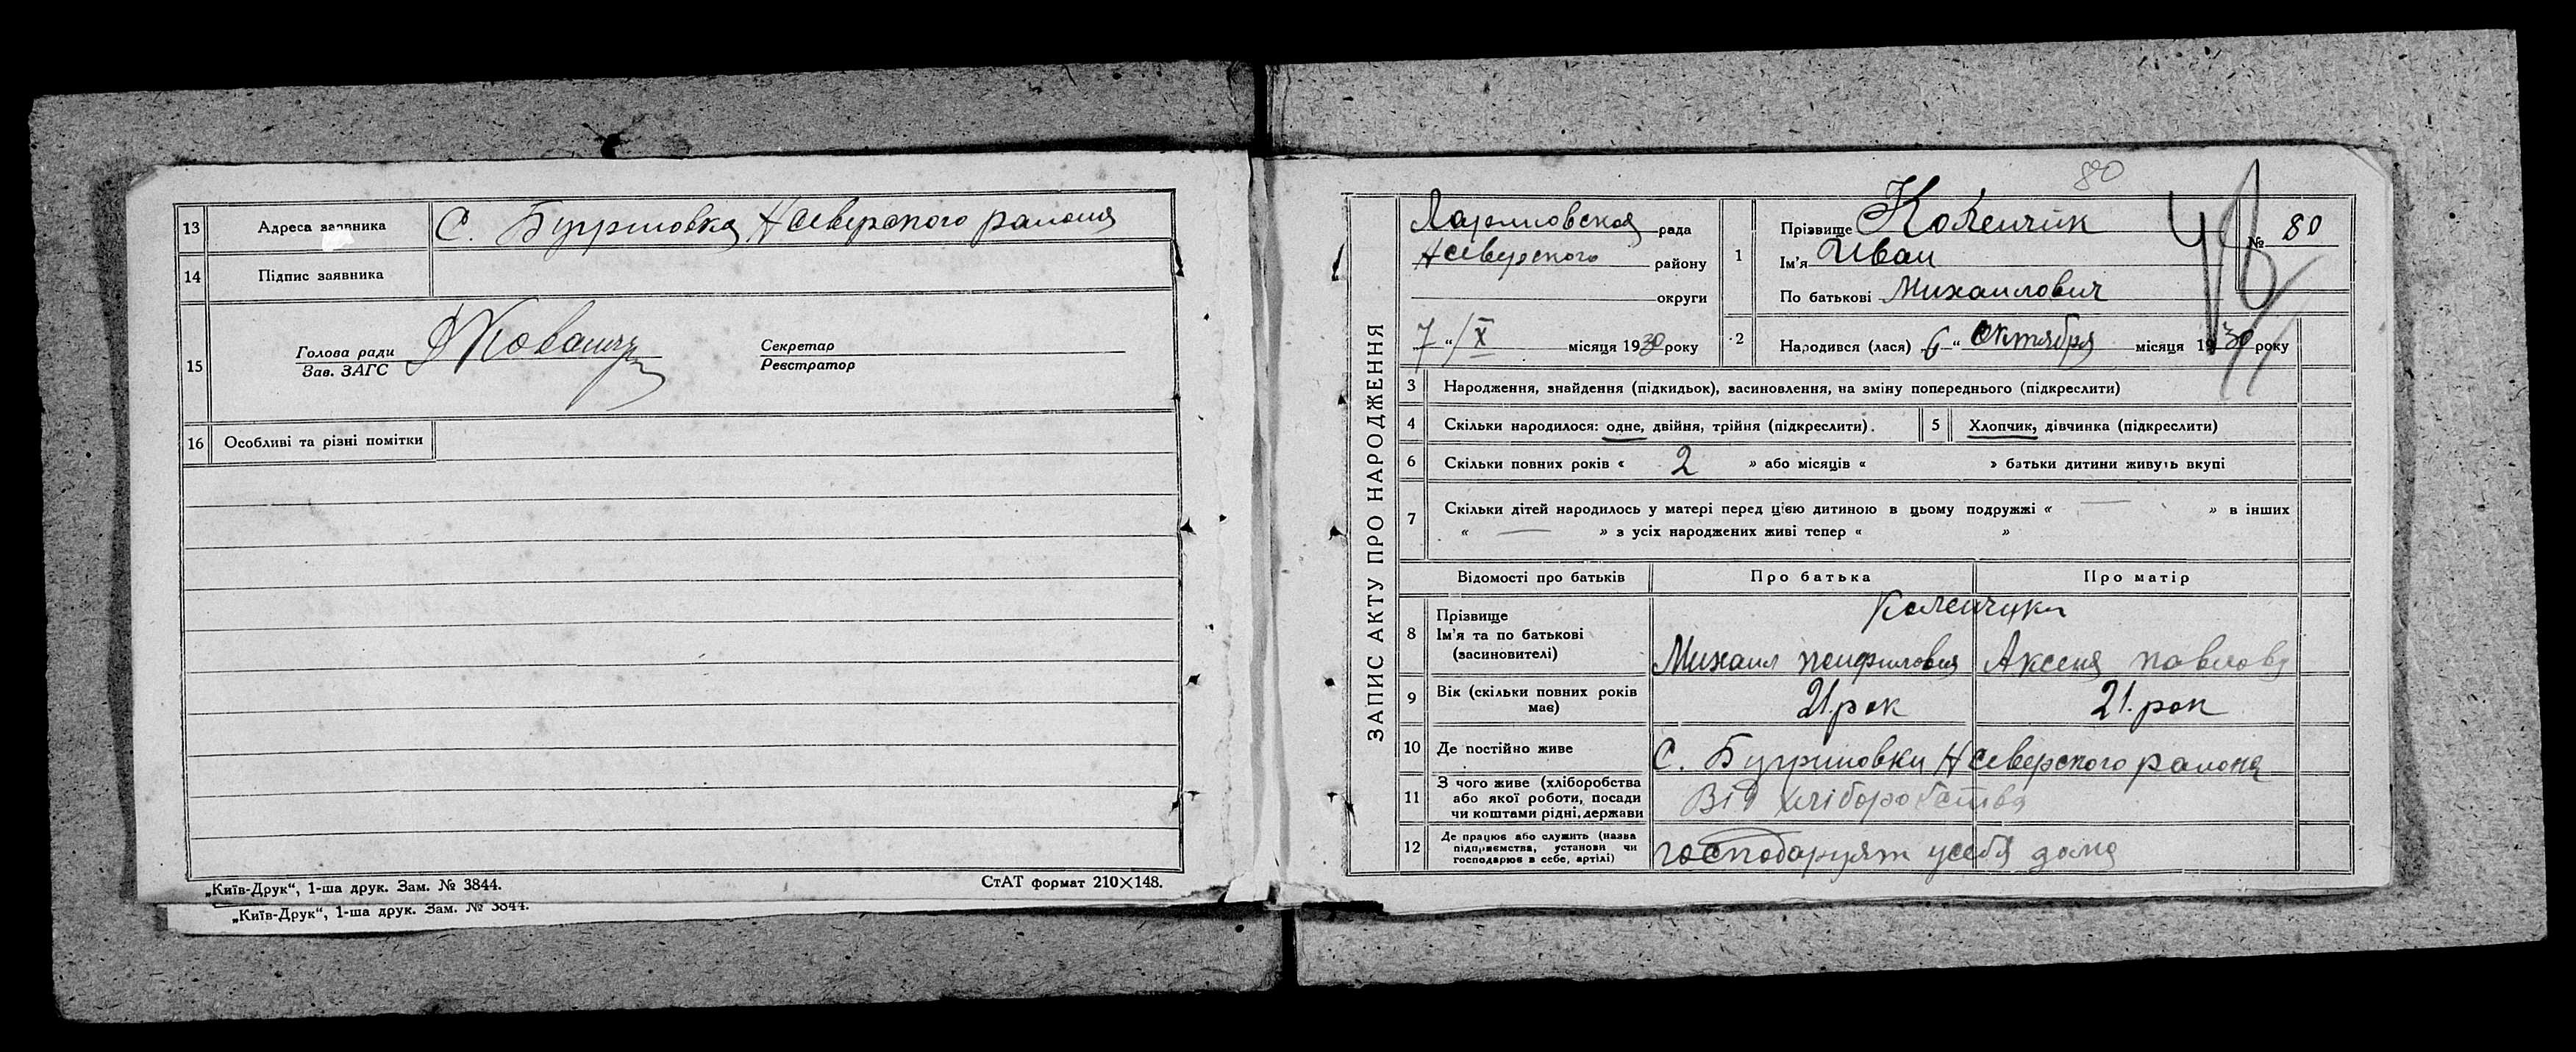 13 Адреса заявника С. Бугриновка Нсеверского района
14 Підпис заявника
15 Голова ради Секретар
Зав. ЗАГС Реєстратор
16 Особливі та різні помітки
„Київ-Друк“, 1-ша друк. Зам. № 3844.
СтАТ формат 210×148.
„Київ-Друк“, 1-ша друк. Зам. № 3844.
80
ЗАПИС АКТУ ПРО НАРОДЖЕННЯ
рада
Нсеверского району
округи
7 “/X місяця 1930 року
№ 80
1 Прізвище Коленчик
Ім'я Иван
По батькові Михаилович
2 Народився (лася) 6 “ Октября місяця 1930 року
3 Народження, знайдення (підкидьок), засиновлення, на зміну попереднього (підкреслити)
4 Скільки народилося: одне, двійня, трійня (підкреслити).
5 Хлопчик, дівчинка (підкреслити)
6 Скільки повних років « 2 » або місяців « » батьки дитини живуть вкупі
7 Скільки дітей народилось у матері перед цією дитиною в цьому подружжі « — » в інших
« — » з усіх народжених живі тепер « »
Відомості про батьків Про батька Про матір
8 Прізвище
Ім'я та по батькові
(засиновителі)
Коленчики
Михаил Аксеня Павлова
9 Вік (скільки повних років
має)
21 рок 21. рок
10 Де постійно живе С. Бугриновки Нсеверского района
11 З чого живе (хліборобства
або якої роботи, посади
чи коштами рідні, держави
Від хліборобства
12 Де працює або служить (назва
підприємства, установи чи
господарює в себе, артілі)
господаруят усебя дома